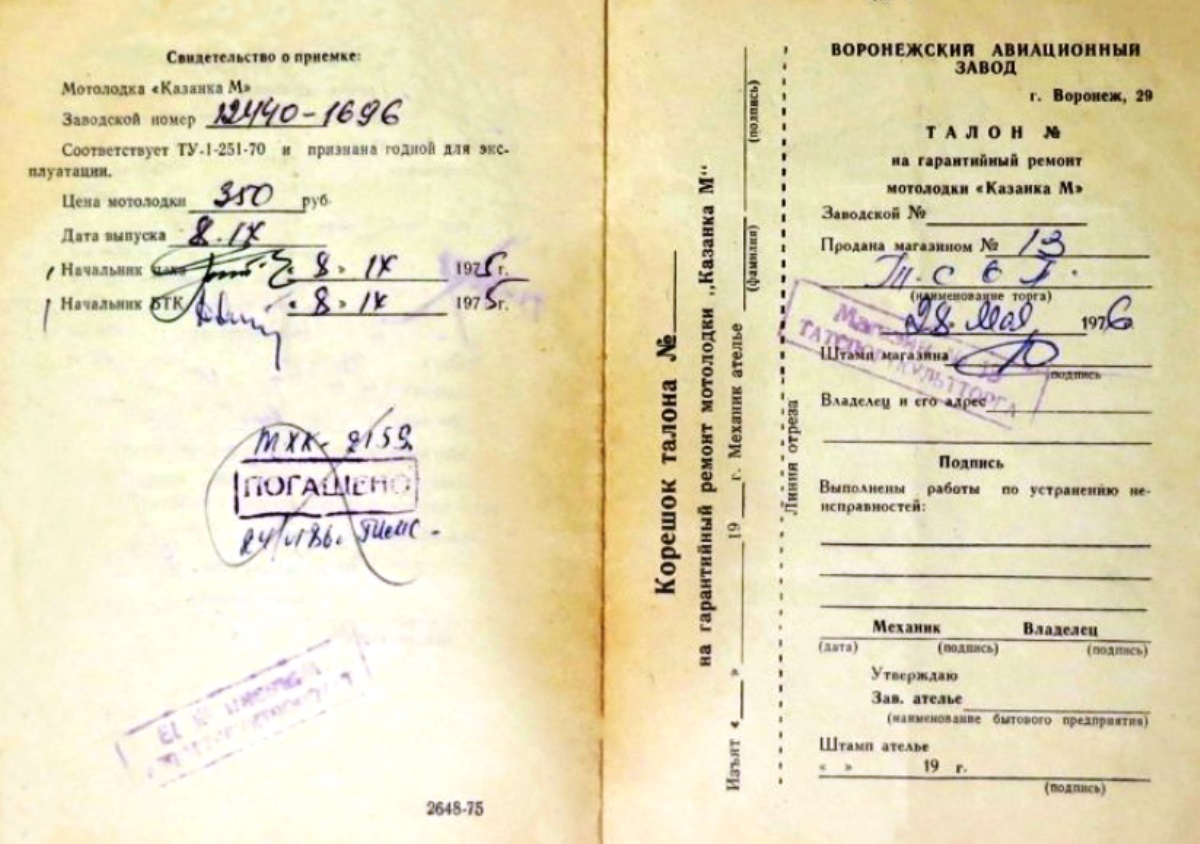 Свидетельство о приемке:
Мотолодка «Казанка М»
Заводской номер 12440-1696
Соответствует ТУ-1-251-70 и признана годной для экс-
плуатации.
Цена мотолодки 350 руб.
Дата выпуска 8.IX
Начальник цеха « 8 » IX 1975 г.
Начальник БТК « 8 » IX 1975 г.
МХК- 2159
ПОГАШЕНО
2648-75
Корешок талона №
на гарантийный ремонт мотолодки „Казанка М"
Изъят « » 19 г. Механик ателье
(фамилия) (подпись)
Линия отреза
ВОРОНЕЖСКИЙ АВИАЦИОННЫЙ
ЗАВОД
г. Воронеж, 29
ТАЛОН №
на гарантийный ремонт
мотолодки «Казанка М»
Заводской №
Продана магазином № 13
Т.С.К.Т.
(наименование торга)
28 Мая 1976
Магазин № 13
ТАТСПОРТКУЛЬТТОРГА
Штамп магазина
подпись
Владелец и его адрес
Подпись
Выполнены работы по устранению не-
исправностей:
Механик Владелец
(дата) (подпись) (подпись)
Утверждаю
Зав. ателье
(наименование бытового предприятия)
Штамп ателье
« » 19 г.
(подпись)